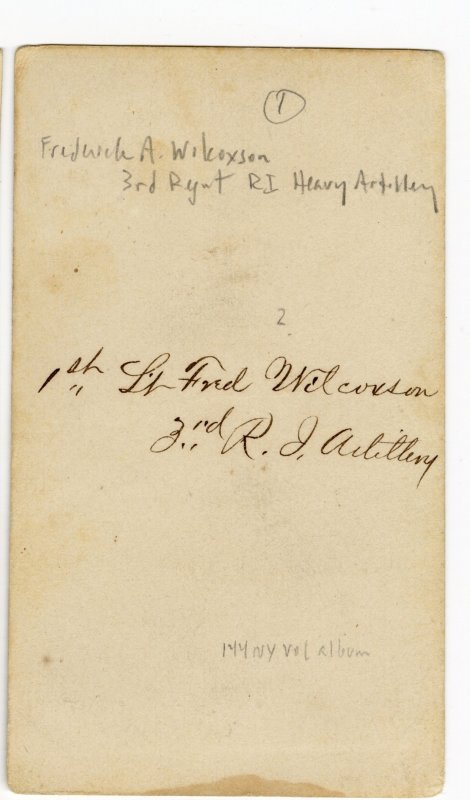 1
Fredrick A. Wilcoxson
3rd Regmt RI Heavy Artillery
2
1st Lt Fred Wilcoxson
3rd R. I. Artillery
144 NY Vol album